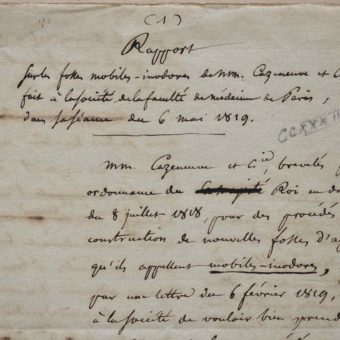 (1)
Rapport
sur les fosses mobiles-inodores de MM. Cazeneuve et C
fait à la société de la faculté de médecine de Paris,
dans sa séance du 6 mai 1819.
MM. Cazeneuve et Cie, brevetés p
ordonnance du Roi en da
du 8 juillet 1818, pour des procédés
construction de nouvelles fosses d'a
qu'ils appellent mobiles-inodores,
par une lettre du 6 février 1819,
à la société de vouloir bien prend